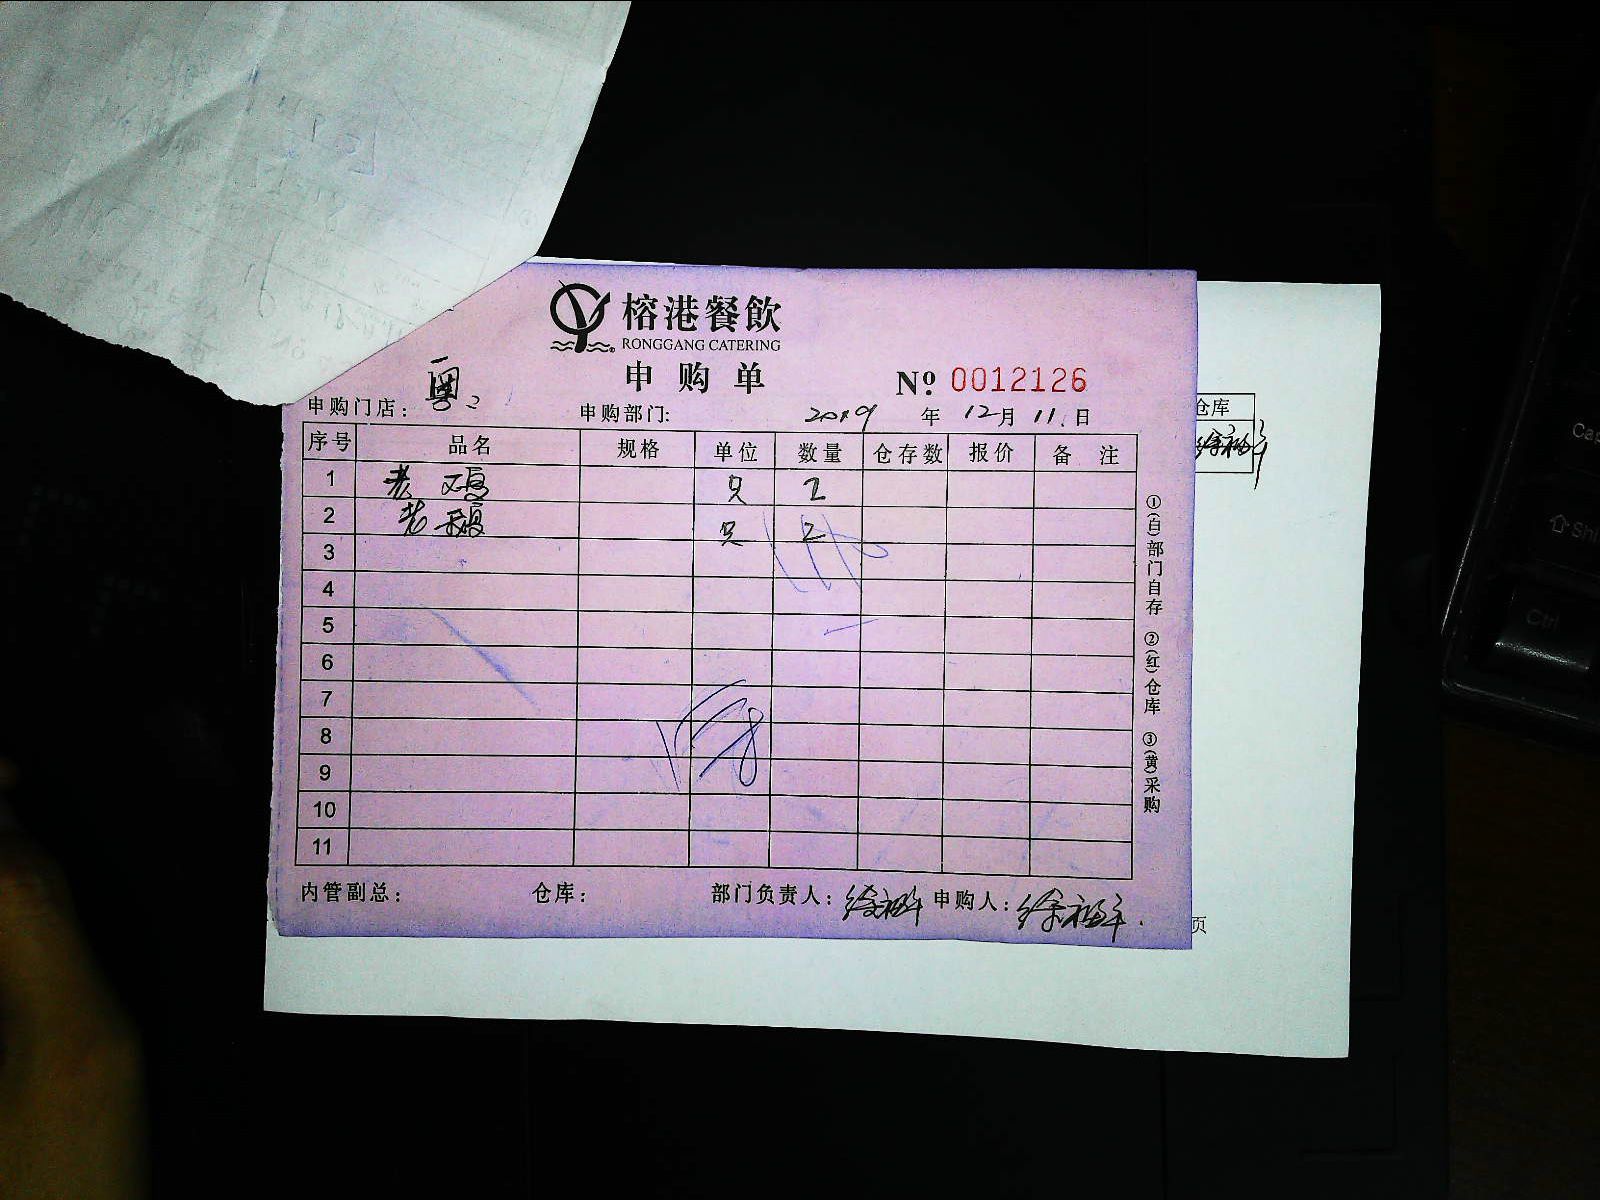 榕港餐飲
RONGGANG CATERING
申购单
№ 0012126
申购门店：粤2 申购部门： 2019年12月11日
仓库
序号 品名 规格 单位 数量 仓存数 报价 备注
1 老鸡 只 2
2 老鸭 只 2
3
4
5
6
7
8
9
10
11
①(白)部门自存 ②(红)仓库 ③(黄)采购
内管副总： 仓库： 部门负责人： 申购人：
页
Ctrl